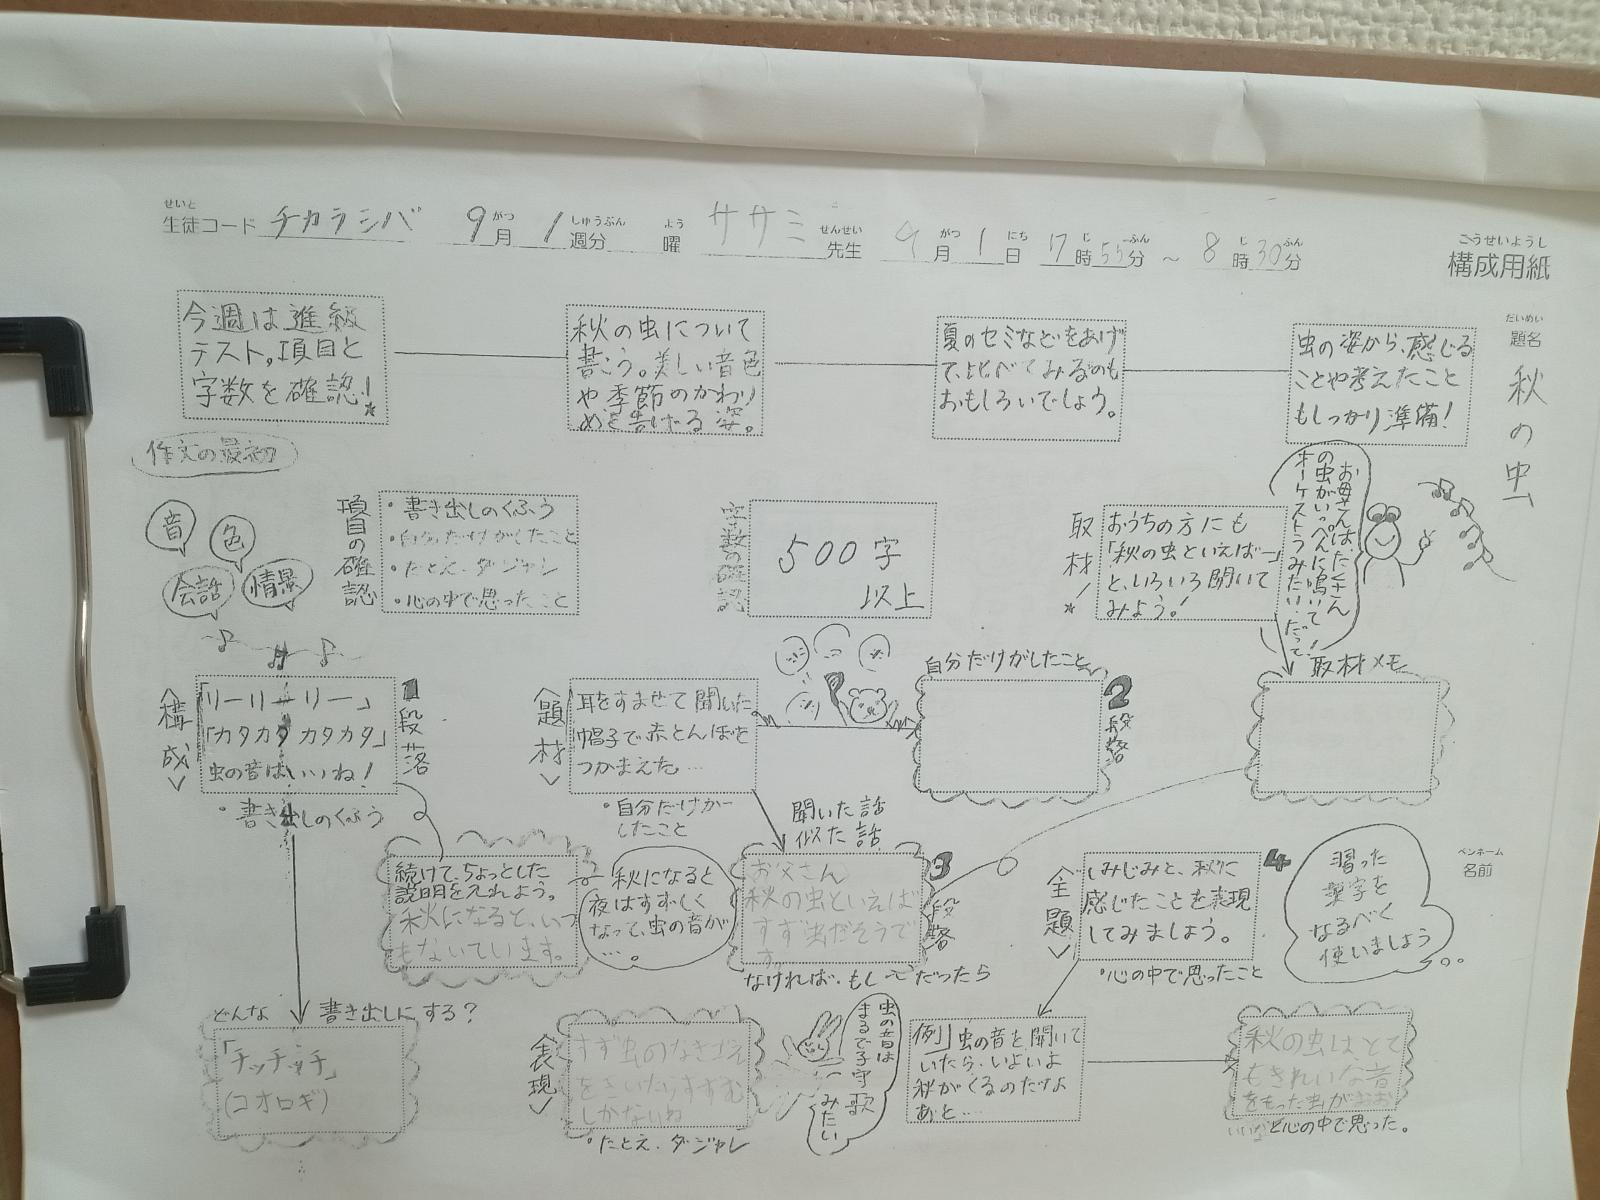 せいと がつ しゅうぶん よう せんせい がつ にち じ ふん じ ふん
生徒コード チカラシバ 9月 1週分 曜 ササミ先生 9月 1日 17時55分 ～ 8時30分
こうせいようし
構成用紙
だいめい
題名
秋の虫
今週は進級
テスト。項目と
字数を確認!
秋の虫について
書こう。美しい音色
や季節のかわり
めを告げる姿。
夏のセミなどをあげ
て、比べてみるのも
おもしろいでしょう。
虫の姿から、感じる
ことや考えたこと
もしっかり準備!
作文の最初
音
色
会話
情景
項目の確認
・書き出しのくふう
・自分だけがしたこと
・たとえ・ダジャレ
・心の中で思ったこと
字数の確認
500字
以上
取材!
おうちの方にも
「秋の虫といえば―」
と、いろいろ聞いて
みよう!
お母さんは、たくさん
の虫がいっぺんに鳴いて
オーケストラみたい!だって
取材メモ
構成
「リーリーリー」
「カタカタカタカタ」
虫の音はいいね!
1段落
・書き出しのくふう
題材
耳をすませて聞いた
帽子で赤とんぼを
つかまえた…
・自分だけがー
したこと
自分だけがしたこと
2段落
続けて、ちょっとした
説明を入れよう。
秋になると、いつ
もないています。
秋になると
夜はすずしく
なって、虫の音が
…。
聞いた話
似た話
お父さん
秋の虫といえば
すず虫だそうで
す。
3段落
なければ・もし〜だったら
全題
しみじみと、秋に
感じたことを表現
してみましょう。
4
・心の中で思ったこと
習った
漢字を
なるべく
使いましょう
ペンネーム
名前
どんな 書き出しにする?
「チッチッチ」
(コオロギ)
表現
すず虫のなきごえ
をきいたらすずむ
しかないね
・たとえ・ダジャレ
虫の音は
まるで子守歌
みたい
例」虫の音を聞いて
いたら、いよいよ
秋がくるのだなぁ
あと…
秋の虫はとて
もきれいな音
をもった虫がおお
いなと心の中で思った。